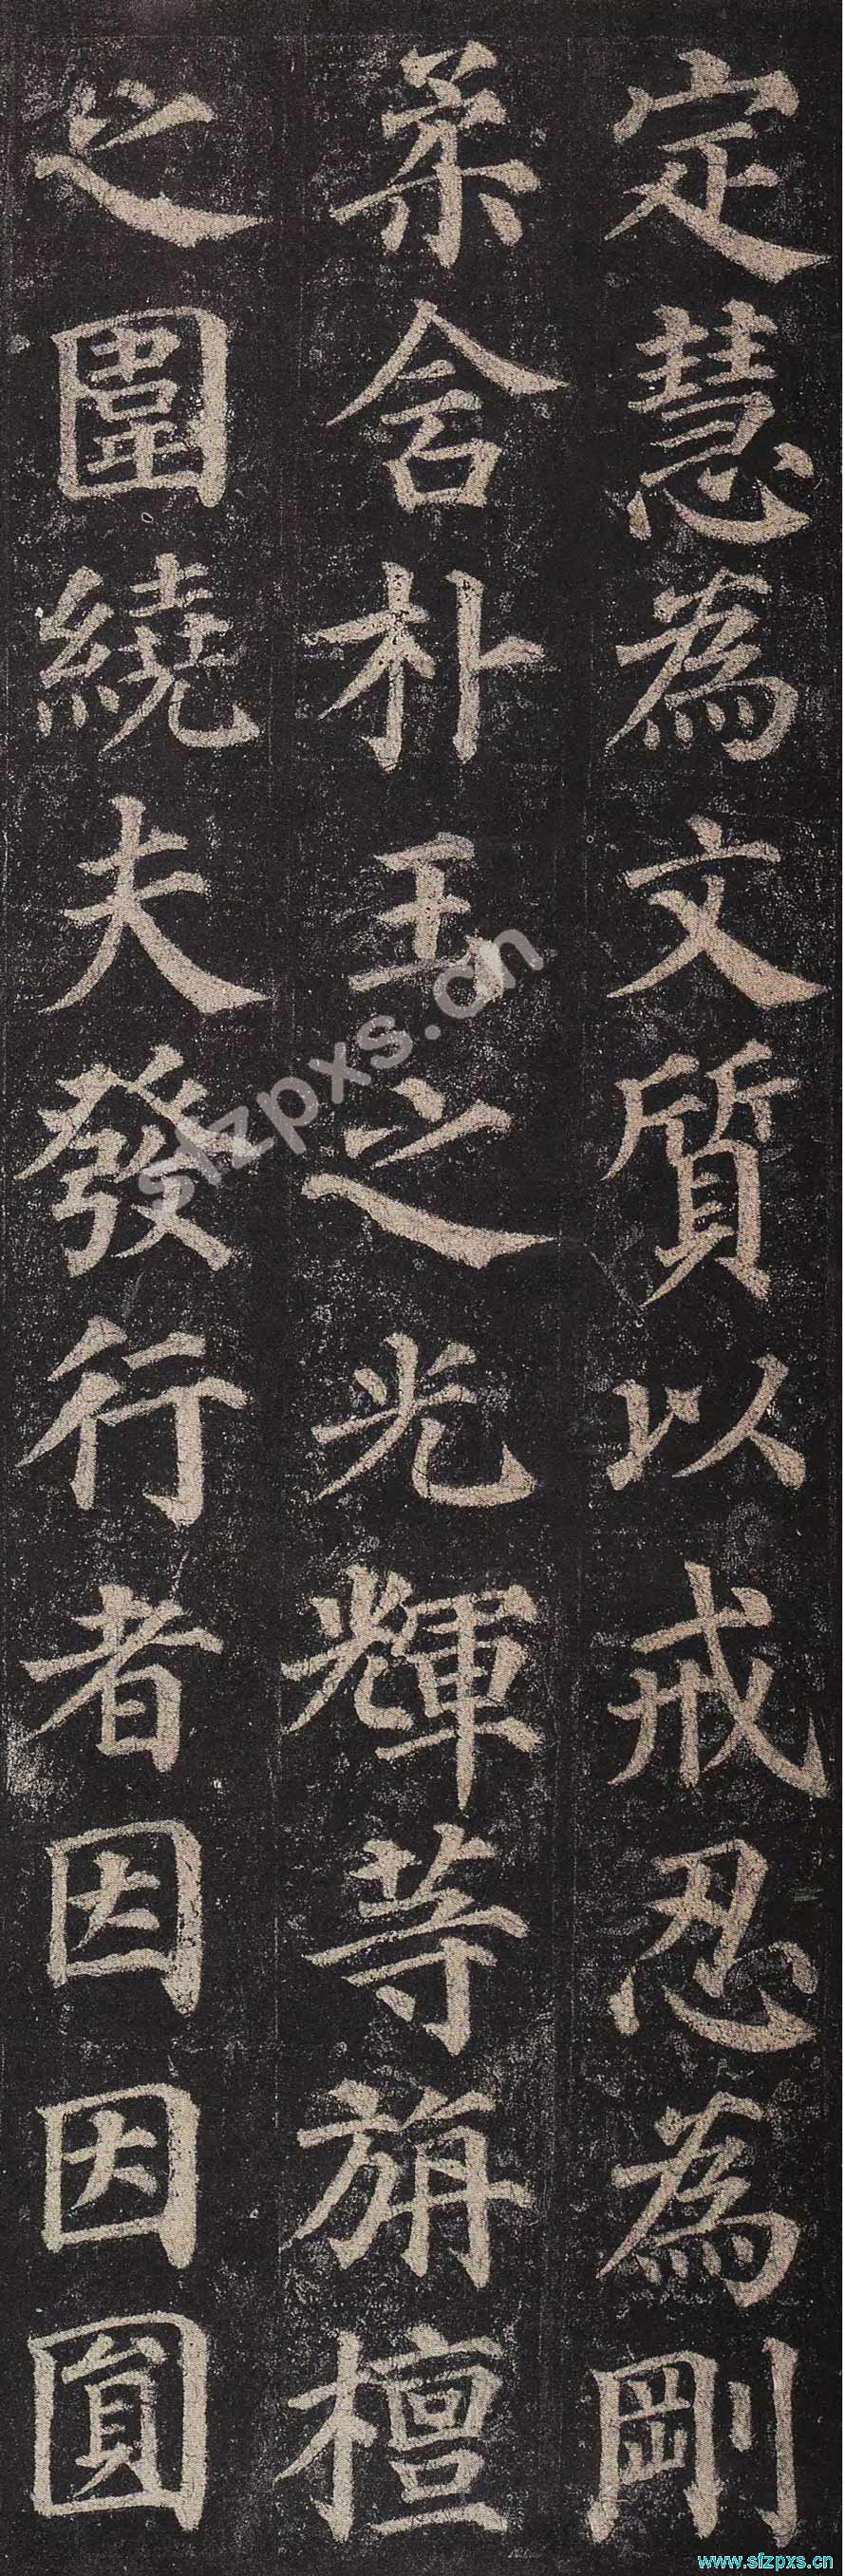 定慧為文質以戒忍為剛
柔含朴玉之光輝等旃檀
之圍繞夫發行者因因圓
sfzpxs.cn
www.sfzpxs.cn